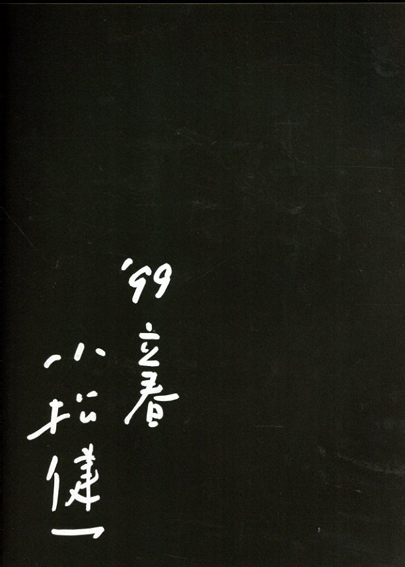 '99 立春
小松健一